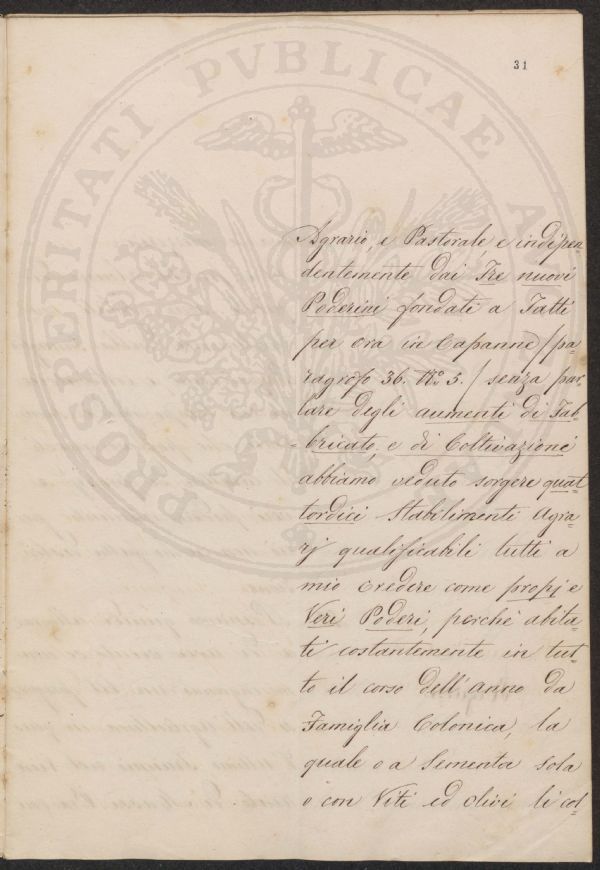 31
PROSPERITATI PVBLICAE A
Agrario, e Pastorale, e indipen
dentemente dai Tre nuovi
Poderini fondati a Tatti
per ora in Capanne / pa=
ragrofo 36. No. 5. / senza par
lare degli aumenti di Fab=
=bricato, e di Coltivazione
abbiamo veduto sorgere quat
tordici Stabilimenti Agra=
rj qualificabili tutti a
mio credere come proprj e
Veri Poderi, perchè abita=
ti costantemente in tut=
to il corso dell'anno da
Famiglia Colonica, la
quale o a Sementa sola
o con Viti ed olivi li col=